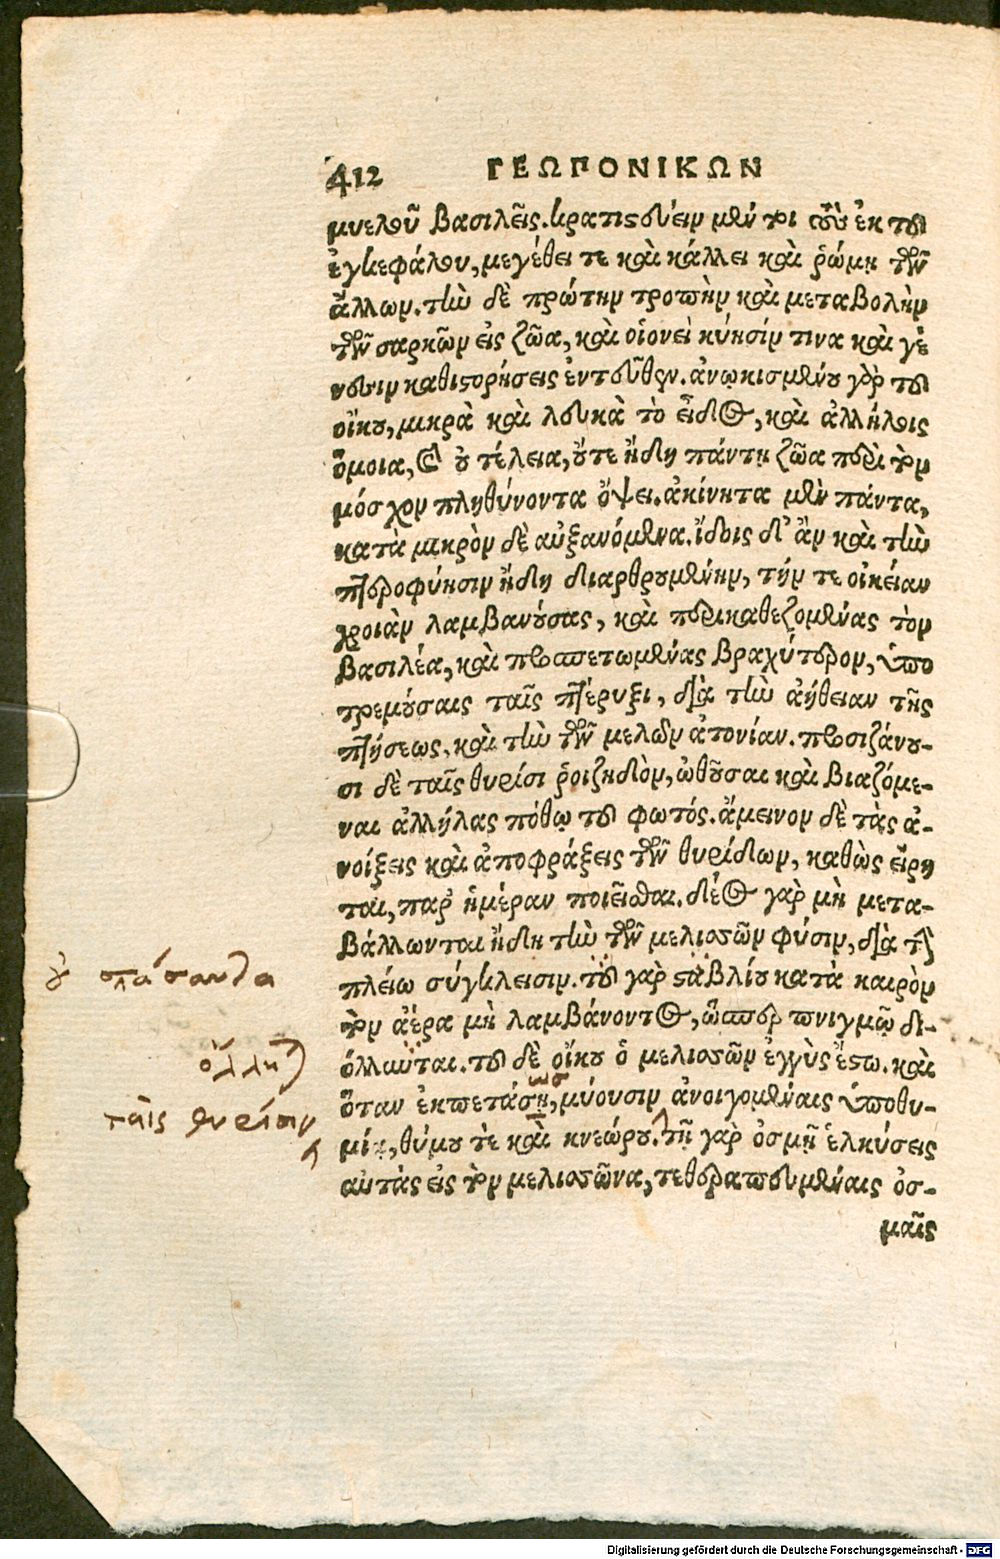 412 ΓΕΩΠΟΝΙΚΩΝ
μυελοῦ βασιλεῖς. κρατιστεύειν μέντοι τοὺς ἐκ τοῦ
ἐγκεφάλου, μεγέθει τε καὶ κάλλει καὶ ῥώμῃ τῶν
ἄλλων. τὴν δὲ πρώτην τροπὴν καὶ μεταβολὴν
τῶν σαρκῶν εἰς ζῶα, καὶ οἱονεὶ κύησίν τινα καὶ γέ
νεσιν καθιστορήσεις ἐντεῦθεν. ἀνῳκισμένου γὰρ τοῦ
οἴκου, μικρὰ καὶ λευκὰ τὸ εἶδος, καὶ ἀλλήλοις
ὅμοια, καὶ οὐ τέλεια, οὔτε ἤδη πάντη ζῶα περὶ τὸν
μόσχον πληθύνοντα ὄψει. ἀκίνητα μὲν πάντα,
κατὰ μικρὸν δὲ αὐξανόμενα. ἴδοις δ' ἂν καὶ τὴν
πτεροφύησιν ἤδη διαρθρουμένην, τήν τε οἰκείαν
χροιὰν λαμβανούσας, καὶ περικαθεζομένας τὸν
βασιλέα, καὶ προσπετωμένας βραχύτερον, ὑπο
τρεμούσαις ταῖς πτέρυξι, διὰ τὴν ἀήθειαν τῆς
πτήσεως, καὶ τὴν τῶν μελῶν ἀτονίαν. προσιζάνου-
σι δὲ ταῖς θυρίσι ῥοιζηδὸν, ὠθοῦσαι καὶ βιαζόμε-
ναι ἀλλήλας πόθῳ τοῦ φωτός. ἄμεινον δὲ τὰς ἀ-
νοίξεις καὶ ἀποφράξεις τῶν θυρίδων, καθὼς εἴρη
ται, παρ' ἡμέραν ποιεῖσθαι. δέος γὰρ μὴ μετα-
βάλλωνται ἤδη τὴν τῶν μελισσῶν φύσιν, διὰ τὴν
πλείω σύγκλεισιν. τοῦ γὰρ σταβλίου κατὰ καιρὸν
τὸν ἀέρα μὴ λαμβάνοντος, ὥσπερ πνιγμῷ δι-
όλλαυται. τοῦ δὲ οἴκου ὁ μελισσῶν ἐγγὺς ἔστω. καὶ
ὅταν ἐκπετάσῃ, μύουσιν ἀνοιγομέναις ὑποθυ-
μία, θύμου τὲ καὶ κνεώρου. τῇ γὰρ ὀσμῇ ἑλκύσεις
αὐτὰς εἰς τὸν μελισσῶνα, τεθεραπευμέναις ὀσ-
μαῖς
σπάσαντα
ταῖς θυρίσιν
Digitalisierung gefördert durch die Deutsche Forschungsgemeinschaft - DFG